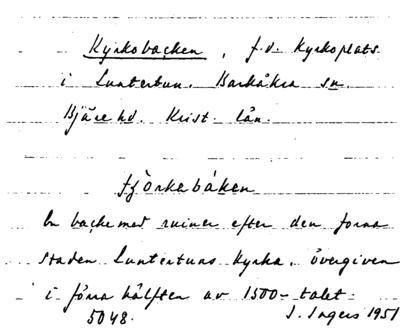 Kyrkobacken, f.d. kyrkoplats
i Luntertun. Barkåkra sn.
Bjäre hd. Krist. län.
fjörkebáken
En backe med ruiner efter den forna
staden Luntertuns kyrka, övergiven
i förra hälften av 1500-talet.
5048. I. Ingers 1951